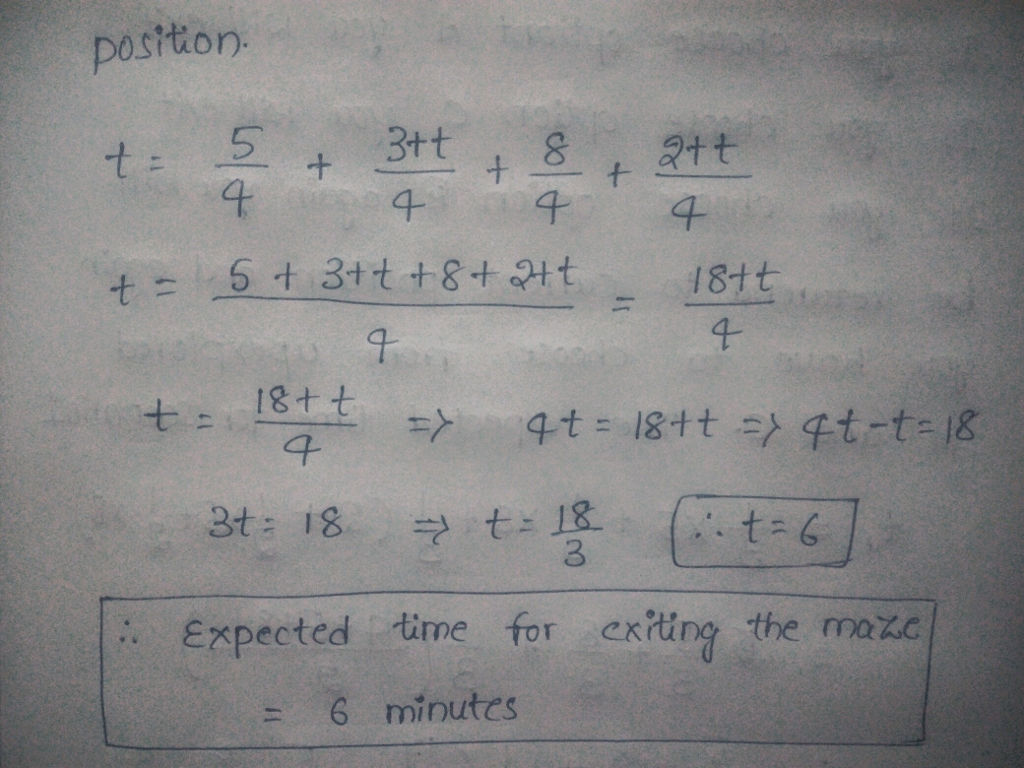 position.
t = 5/4 + 3+t/4 + 8/4 + 2+t/4
t = 5 + 3+t + 8 + 2+t/4 = 18+t/4
t = 18+t/4 => 4t = 18+t => 4t-t=18
3t = 18 => t = 18/3 ∴ t = 6
∴ Expected time for exiting the maze
= 6 minutes